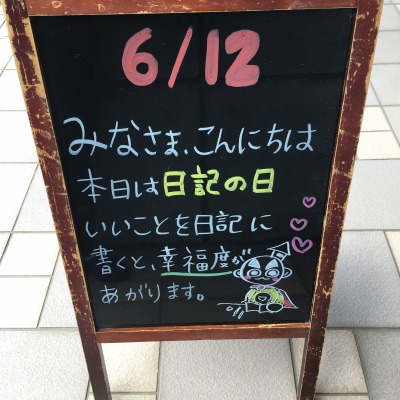 6/12
みなさま、こんにちは
本日は日記の日
いいことを日記に
書くと、幸福度が
あがります。